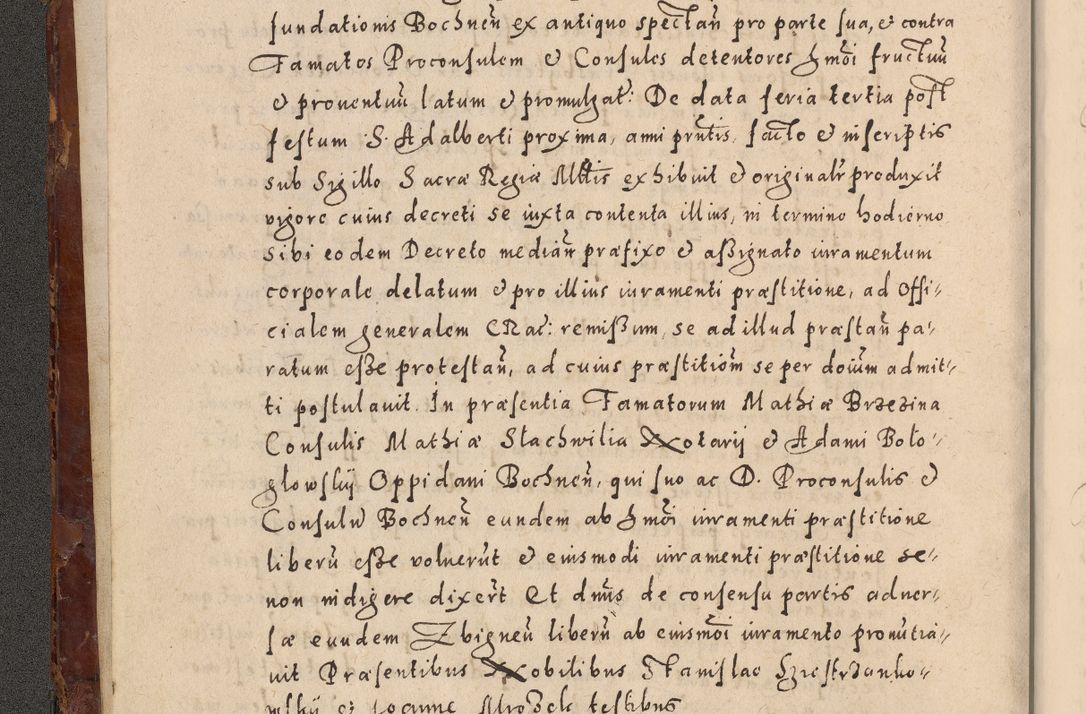 fundationis Bochneñ ex antiquo spectañ pro parte sua, et contra
Famatos Proconsulem et Consules detentores hmõi fructuũ
et prouentuũ latum et promulgat: De data feria tertia post
festum S. Adalberti proxima, anni prñtis, facto et inscriptis
sub Sigillo Sacræ Regiæ Mttis exhibuit et originalr produxit
vigore cuius decreti se iuxta contenta illius, in termino hodierno
sibi eodem Decreto mediañ præfixo et assignato iuramentum
corporale delatum et pro illius iuramenti præstitione, ad Offi-
cialem generalem CRac: remissum, se ad illud præstañ pa-
ratum esse protestañ, ad cuius præstitioñ se per doium admit-
ti postulauit. In præsentia Famatorum Mathiæ Brzezina
Consulis Mathiæ Stachwilia Notarij et Adami Boło-
głowskij Oppidani Bochneñ, qui suo ac D. Proconsulis et
Consulũ Bochneñ eundem ab hmõi iuramenti præstitione
liberũ esse voluerũt et eiusmodi iuramenti præstitione se-
non indigere dixerũt Et dnũs de consensu partis aduer-
sæ eundem Zbigneũ liberũ ab eiusmõi iuramento pronũtia-
uit Præsentibus Nobilibus Stanislao
et Joanne Mrozek testibus